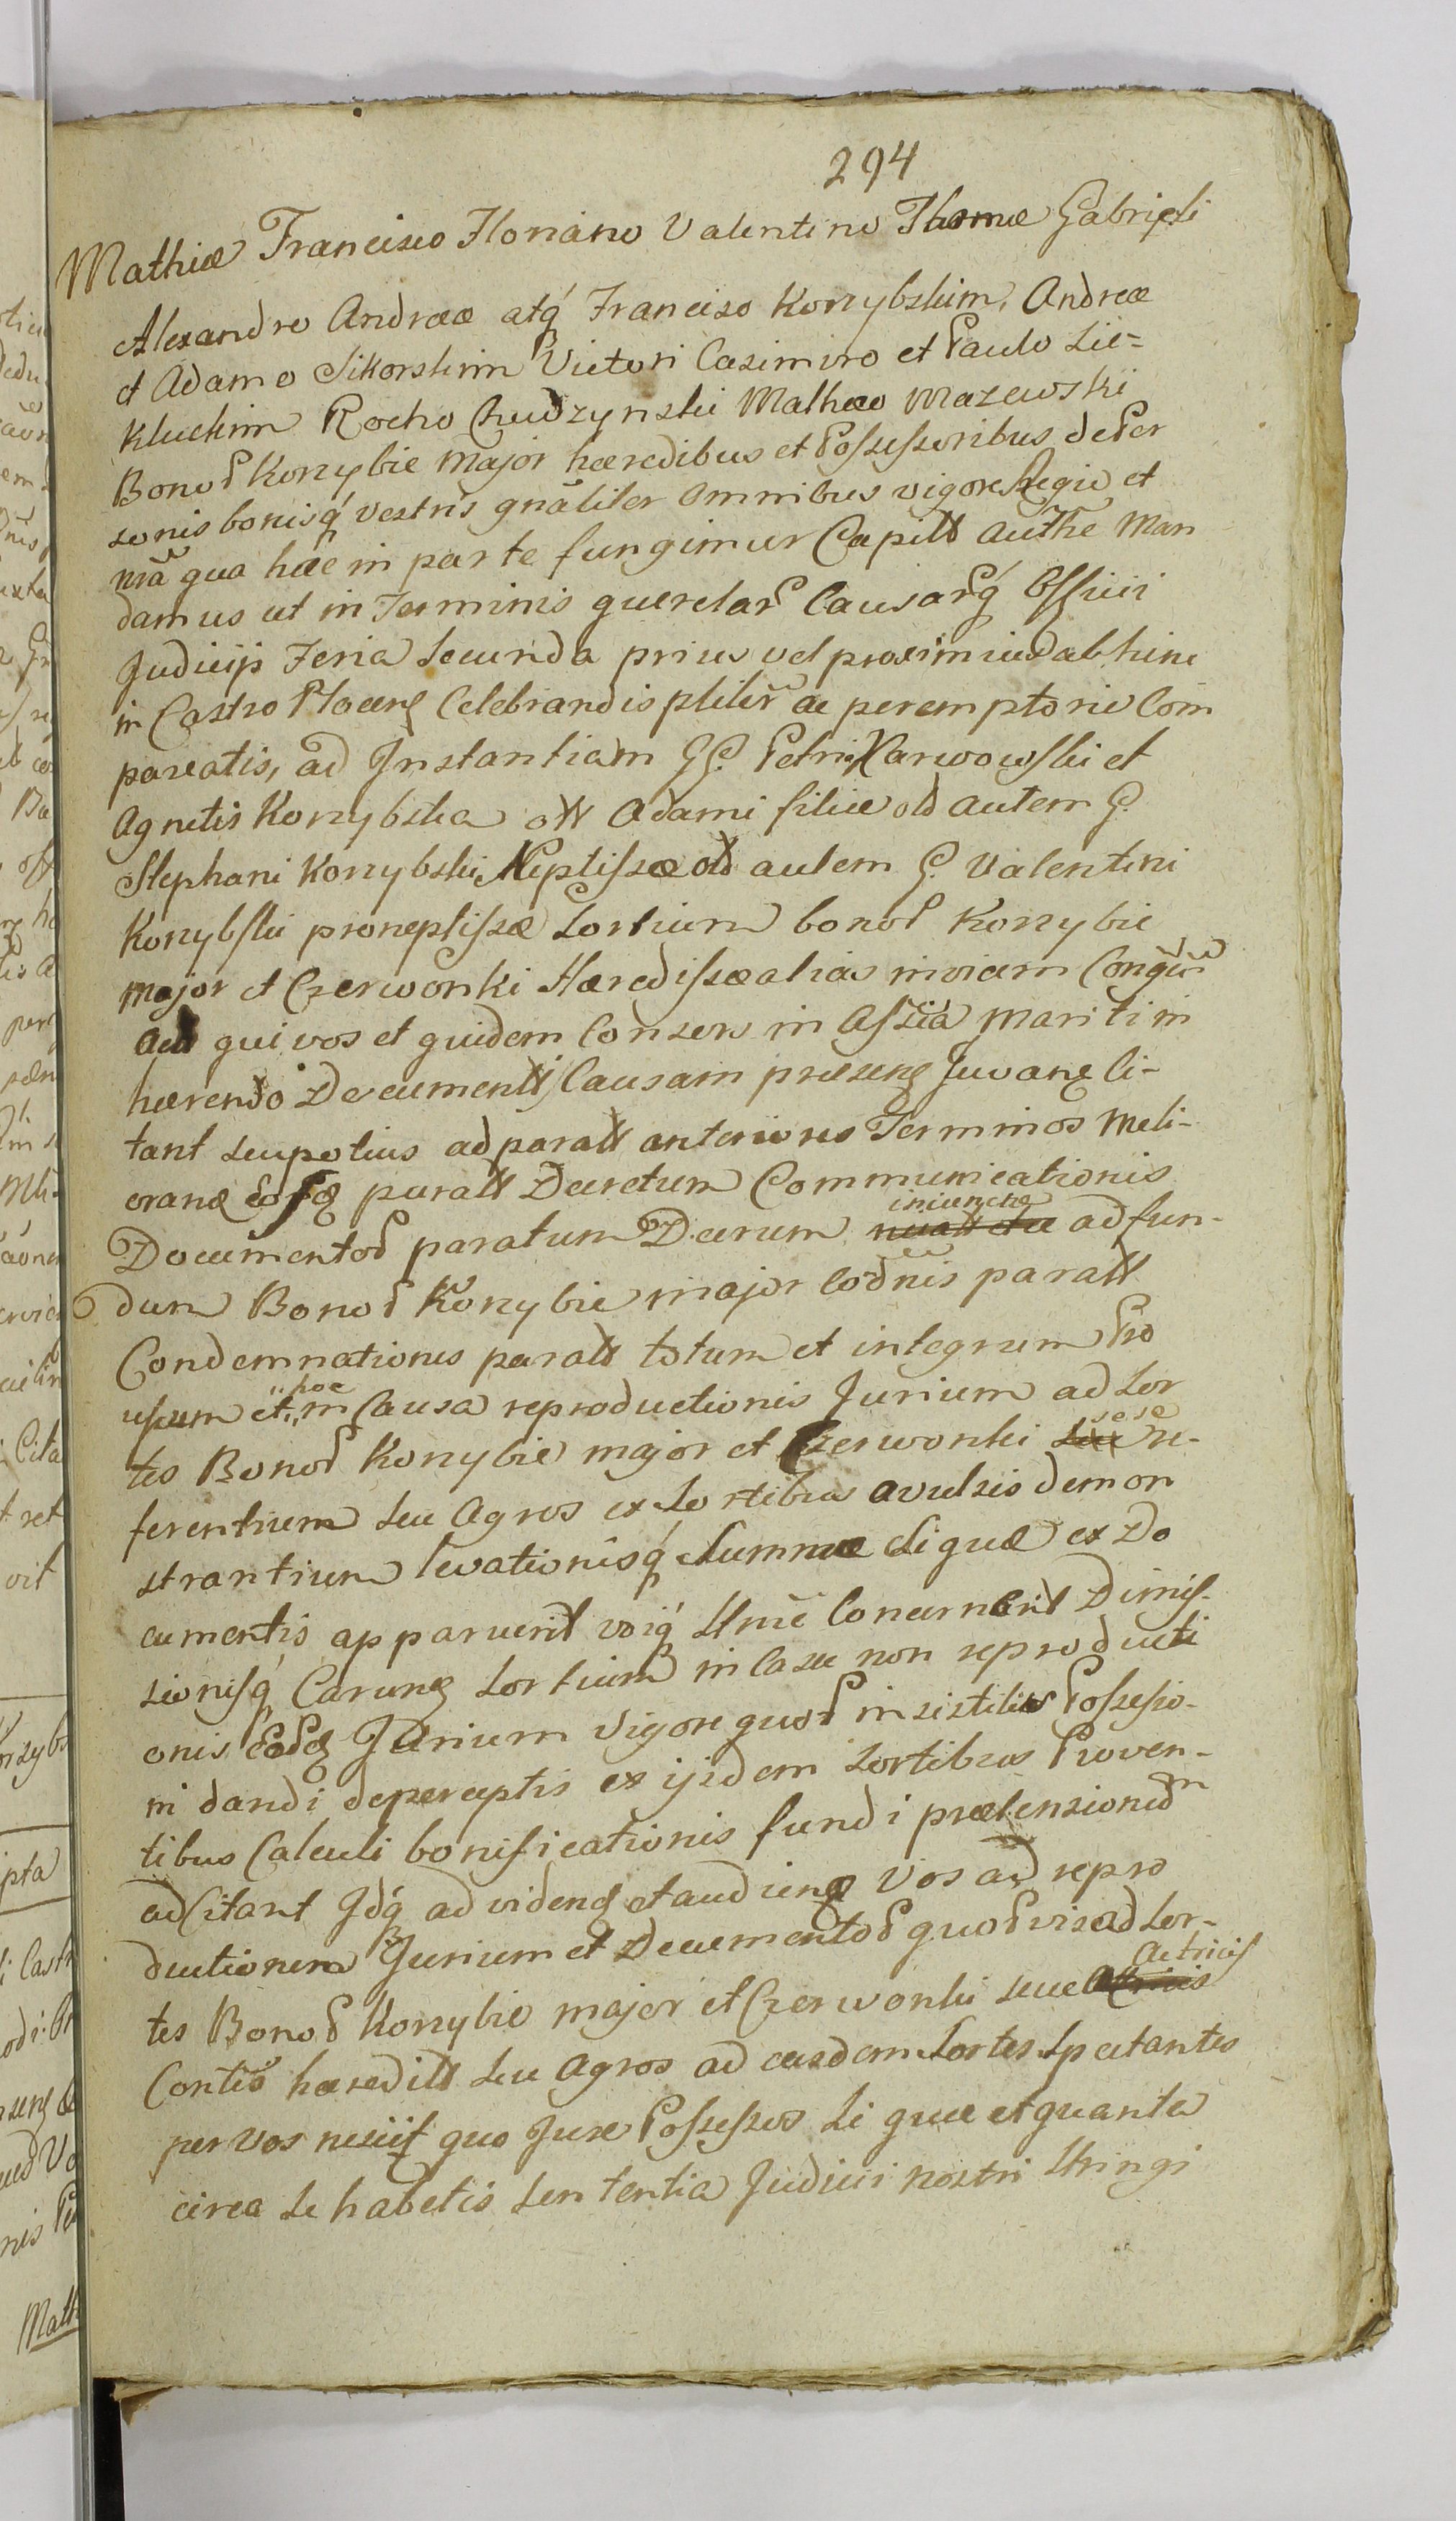 294
Mathiæ Francisco Floriano Valentino Thomæ Gabrieli
Alexandro Andreæ atq́ Franciso Korzybskim, Andreæ
et Adamo Sikorskim Victori Casimiro et Paulo Lie-
kluckim Rocho Chudzynski Mathæo Mazewski
Bonoꝝ Korzybie Major hæredibus et Possessoribus de Per
sonis bonisq́ vestris gnãliter omnibus vigore Regia et
nrã qua hac in parte fungimur Capitt Authe Man
damus ut in Terminis querelarꝝ Causarꝝq́ Officii
Judicijs Feria Secunda prius vel proximius abhinc
in Castro Plocenȩ Celebrandis pliter ac peremptorie Com
pareatis, ad Instantiam GG. Petri Karwowski et
Agnetis Korzybska olt Adami filiæ old autem G.
Stephani Korzybski Neptissæ old autem G. Valentini
Korzybski proneptissæ Sortium bonoꝝ Korzybie
major et Czerwonki Hæredissæ alias invicem Congũ
Act qui vos et quidem Consors in Assĩa Mariti in
hærendo Documentt Causam præsenȩ Juvanȩ Ci-
tant seu potius ad paratt anteriores Terminos Meli-
oranȩ Eosȩ paratt Decretum Communicationis
Documentoꝝ paratum Decrum iniunctæ ad fun-
dum Bonoꝝ Korzybie major Codnis paratt
Condemnationes paratt totum et integrum Pro
usum et in hoc Causa reproductionis Jurium ad Sor
tes Bonoꝝ Korzybie major et Czerwonki sese re-
ferentium seu Agros ex Sortibus avulsis demon
strantium levationisq́ Summæ Si quæ ex Do
cumentis apparuerit vosq́ Concernerit Dimis-
sionisq́ Earunȩ Sortium in Casu non reproducti
onis Eoꝝȩ Jurium Vigore quoꝝ insistitis Possessio-
ni dandi de perceptis ex ijsdem Sortibus Proven-
tibus Calculi bonificationis fundi prætensionem
ad Citant Idq́ ad videnȩ et audienȩ Vos ad repro
ductionem Jurium et Documentoꝝ quoꝝvis ad Sor-
tes Bonoꝝ Korzybie major et Czerwonki seu Actricis
Contẽ hæreditt seu Agros ad easdem Sortes Spectantes
per Vos nesciit quo Jure Possessos Si quæ et quanta
circa Se habetis Sententia Judicii nostri Stringi